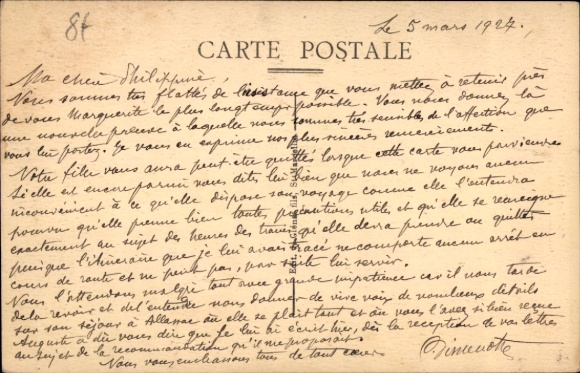 8f
Le 5 mars 1927.
CARTE POSTALE
Ma chère Philippine,
Nous sommes très flattés de l'insistance que vous mettez à retenir près
de vous Marguerite le plus longtemps possible. Vous nous donnez là
une nouvelle preuve à laquelle nous sommes très sensibles de l'affection que
vous lui portez. Je vous en exprime nos plus sincères remerciements.
Notre fille vous aura peut-être quittés lorsque cette carte vous parviendra
Si elle est encore parmi vous dites lui bien que nous ne voyons aucun
inconvénient à ce qu'elle dispose son voyage comme elle l'entendra
pourvu qu'elle prenne bien toutes précautions utiles et qu'elle se renseigne
exactement au sujet des heures des trains qu'elle devra prendre ou quitter
puisque l'itinéraire que je lui avais tracé ne comporte aucun arrêt en
cours de route et ne peut pas, par suite lui servir.
Nous l'attendons malgré tout avec grande impatience car il nous tarde
de la revoir et de l'entendre nous donner de vive voix de nombreux détails
sur son séjour à Allassac où elle se plaît tant et où vous l'avez si bien reçue
Auguste a dû vous dire que je lui ai écrit hier, dès la reception de vos lettres
au sujet de la recommandation qu'il me proposait.
Nous vous embrassons tous de tout coeur